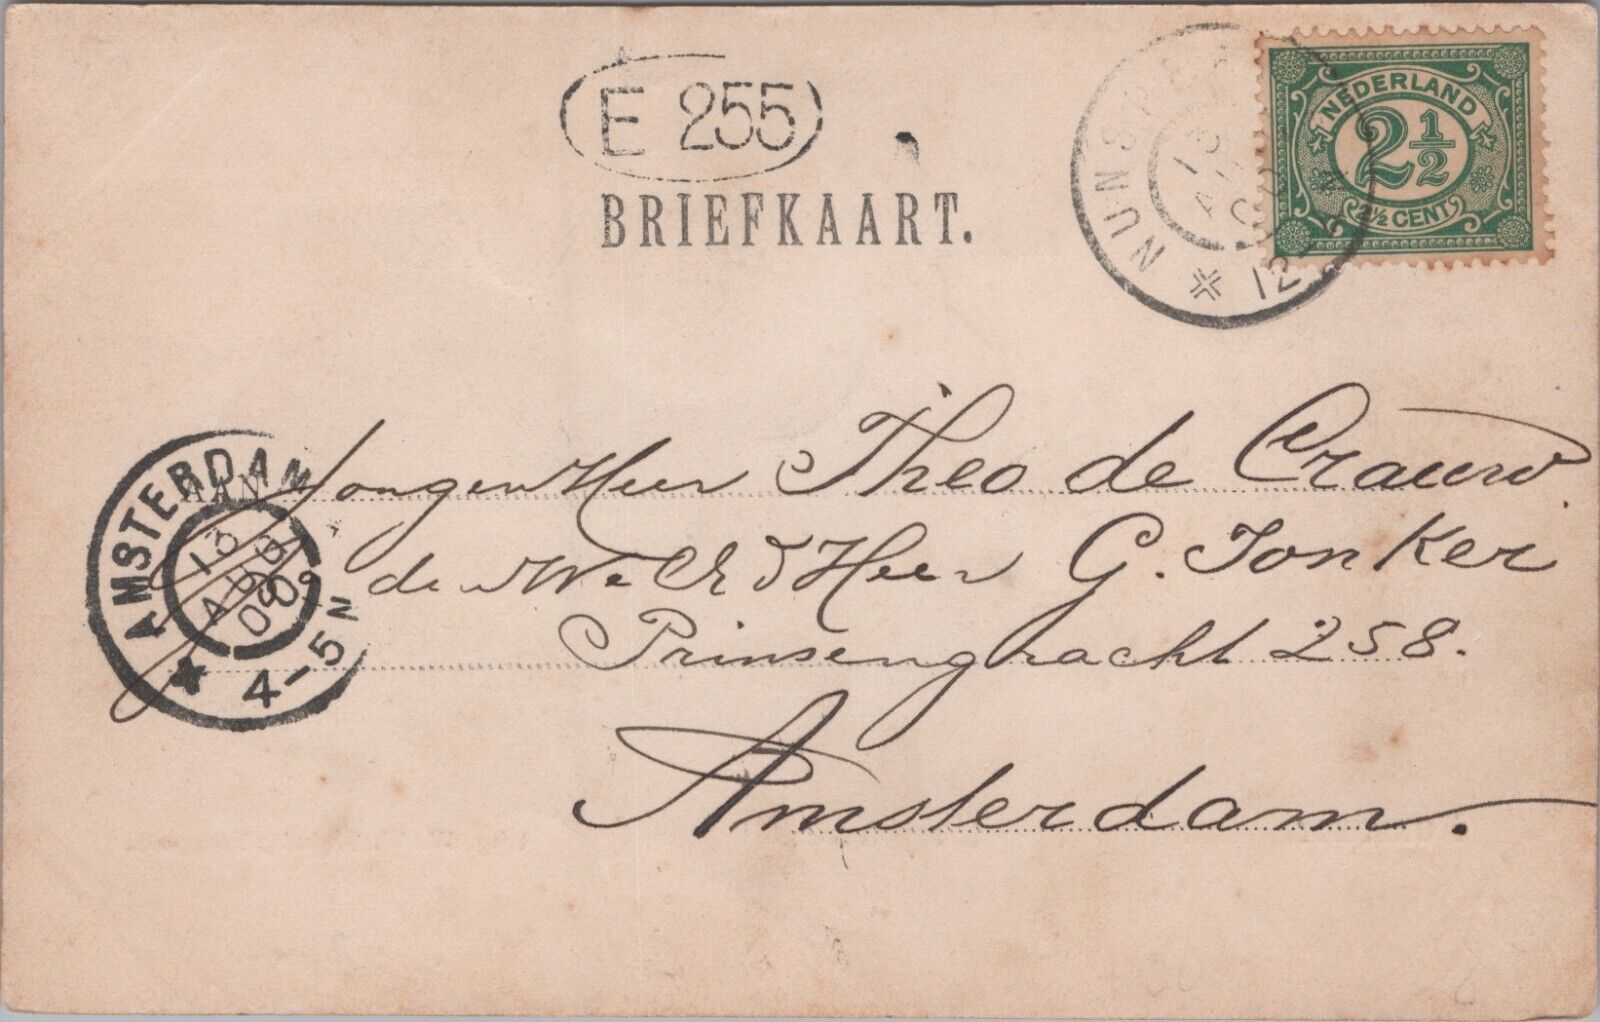 E 255
BRIEFKAART.
NUNSPEET
13
12
NEDERLAND
2 1/2
2½ CENT
AMSTERDAM
13
AUG
00
4-5N
AAN
Jongen Heer Theo de Crauw.
de Heer G. Jonker
Prinsengracht 258.
Amsterdam.